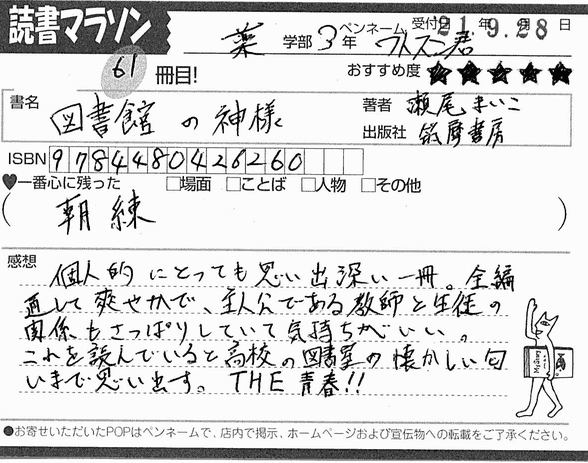 読書マラソン
61 冊目!
薬 学部 3 年
ペンネーム ワトスン君
受付日 21年 9.月28日
おすすめ度 ★★★★★
書名 図書館の神様
著者 瀬尾まいこ
出版社 筑摩書房
ISBN 9784480426260
♥一番心に残った □場面 □ことば □人物 □その他
( 朝練 )
感想
個人的にとっても思い出深い一冊。全編
通して爽やかで、主人公である教師と生徒の
関係もさっぱりしていて気持ちがいい。
これを読んでいると高校の図書室の懐かしい匂
いまで思い出す。THE 青春!!
Mystery
●お寄せいただいたPOPはペンネームで、店内で掲示、ホームページおよび宣伝物への転載をご了承ください。